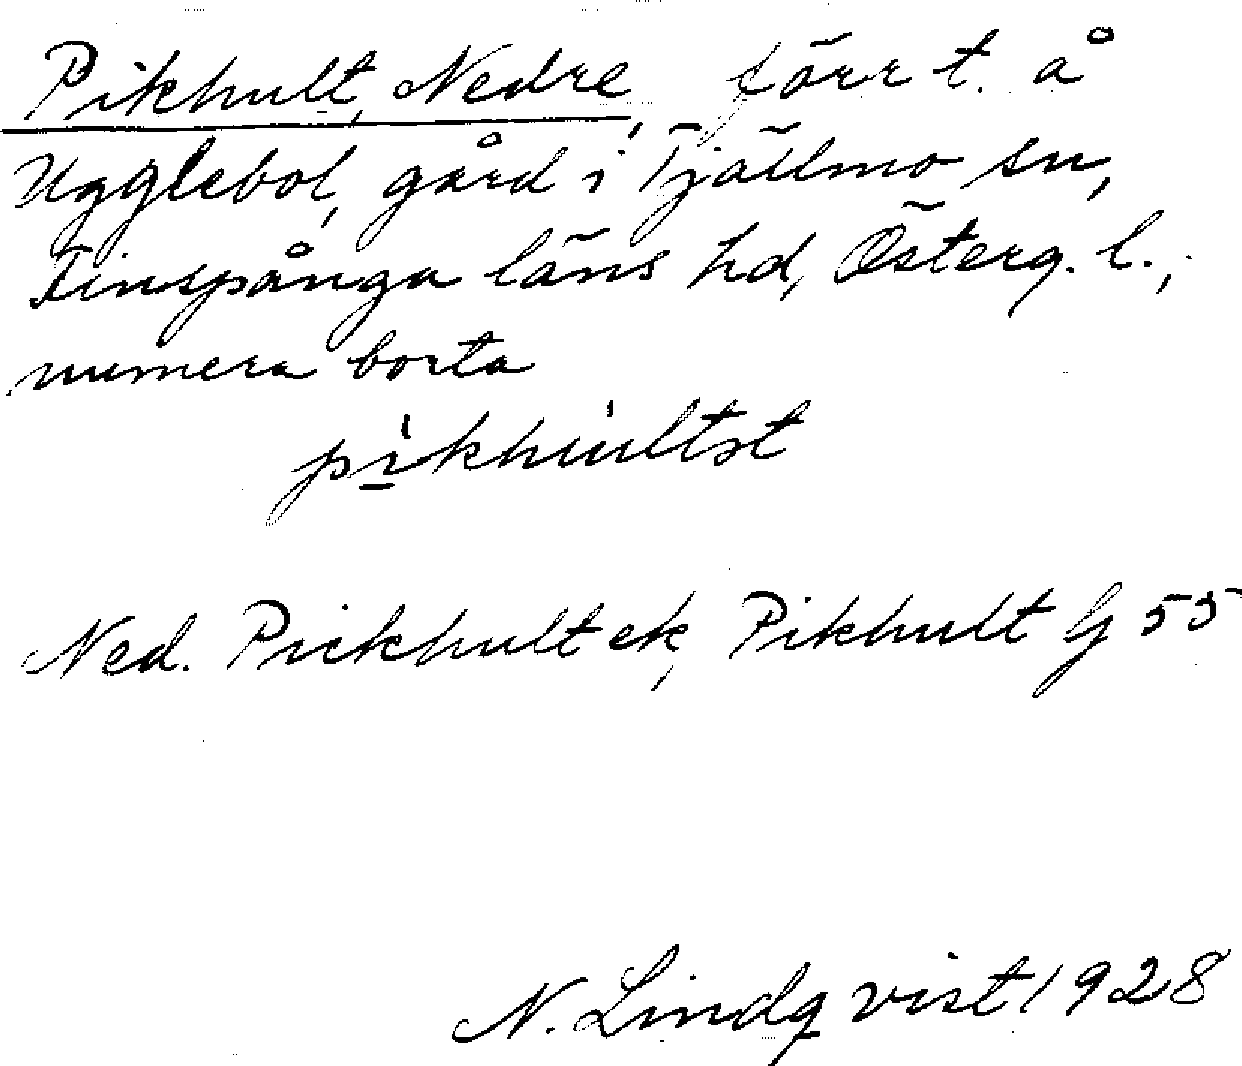 Pikhult, Nedre, förr t. å
Ugglebol, gård i Tjällmo sn,
Finspånga läns hd, Österg. l.,
numera borta
pikhultst
Ned. Pickhult ek, Pikhult G 55
N. Lindqvist 1928